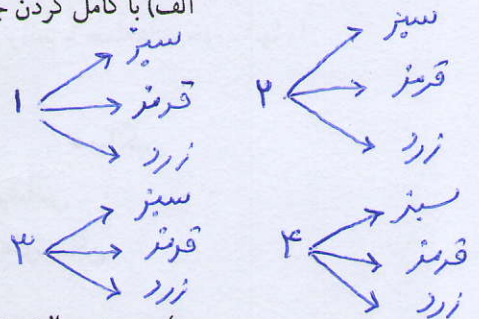 الف) با کامل کردن
۱ سبز قرمز زرد
۲ سبز قرمز زرد
۳ سبز قرمز زرد
۴ سبز قرمز زرد